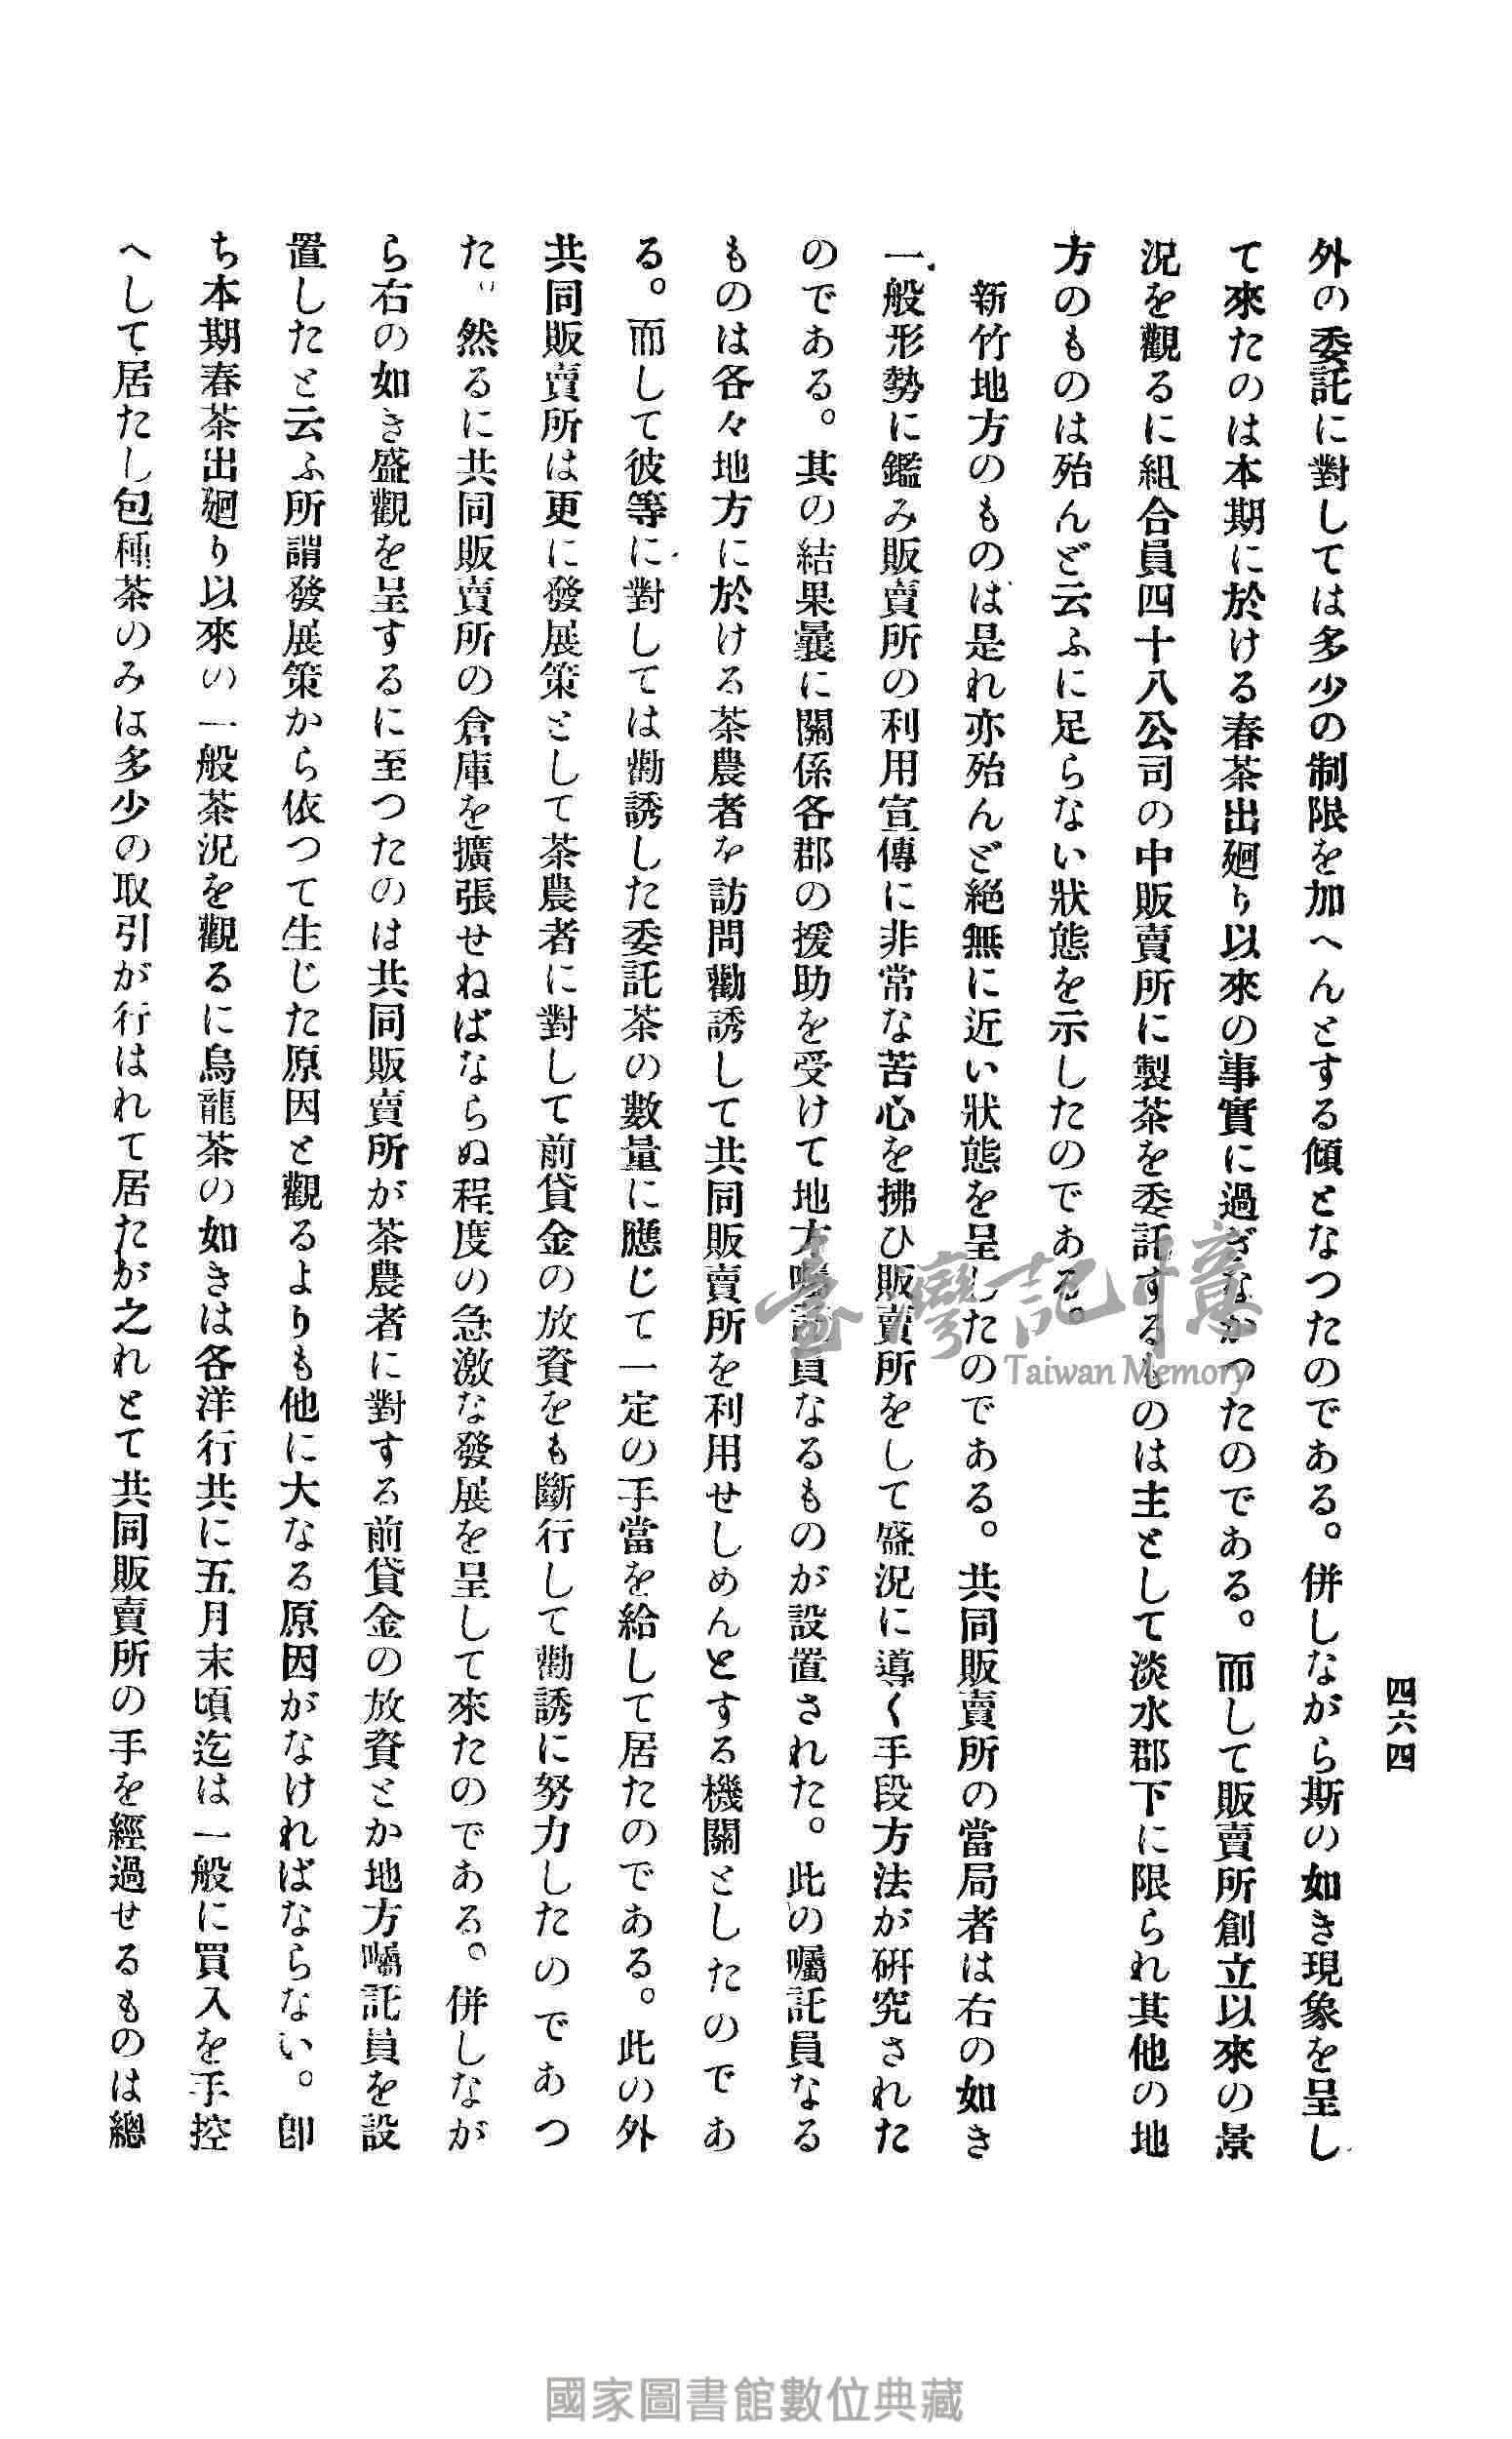 四六四
外の委託に對しては多少の制限を加へんとする傾となつたのである。併しながら斯の如き現象を呈し
て來たのは本期に於ける春茶出廻り以來の事實に過ぎなかつたのである。而して販賣所創立以來の景
況を觀るに組合員四十八公司の中販賣所に製茶を委託するものは主として淡水郡下に限られ其他の地
方のものは殆んど云ふに足らない狀態を示したのである。
新竹地方のものは是れ亦殆んど絕無に近い狀態を呈したのである。共同販賣所の當局者は右の如き
一般形勢に鑑み販賣所の利用宣傳に非常な苦心を拂ひ販賣所をして盛況に導く手段方法が硏究された
のである。其の結果曩に關係各郡の援助を受けて地方囑託員なるものが設置された。此の囑託員なる
ものは各々地方に於ける茶農者を訪問勸誘して共同販賣所を利用せしめんとする機關としたのであ
る。而して彼等に對しては勸誘した委託茶の數量に應じて一定の手當を給して居たのである。此の外
共同販賣所は更に發展策として茶農者に對して前貸金の放資をも斷行して勸誘に努力したのであつ
た。然るに共同販賣所の倉庫を擴張せねばならぬ程度の急激な發展を呈して來たのである。併しなが
ら右の如き盛觀を呈するに至つたのは共同販賣所が茶農者に對する前貸金の放資とか地方囑託員を設
置したと云ふ所謂發展策から依つて生じた原因と觀るよりも他に大なる原因がなければならない。卽
ち本期春茶出廻り以來の一般茶況を觀るに烏龍茶の如きは各洋行共に五月末頃迄は一般に買入を手控
へして居たし包種茶のみは多少の取引が行はれて居たが之れとて共同販賣所の手を經過せるものは總
臺灣記憶
Taiwan Memory
國家圖書館數位典藏